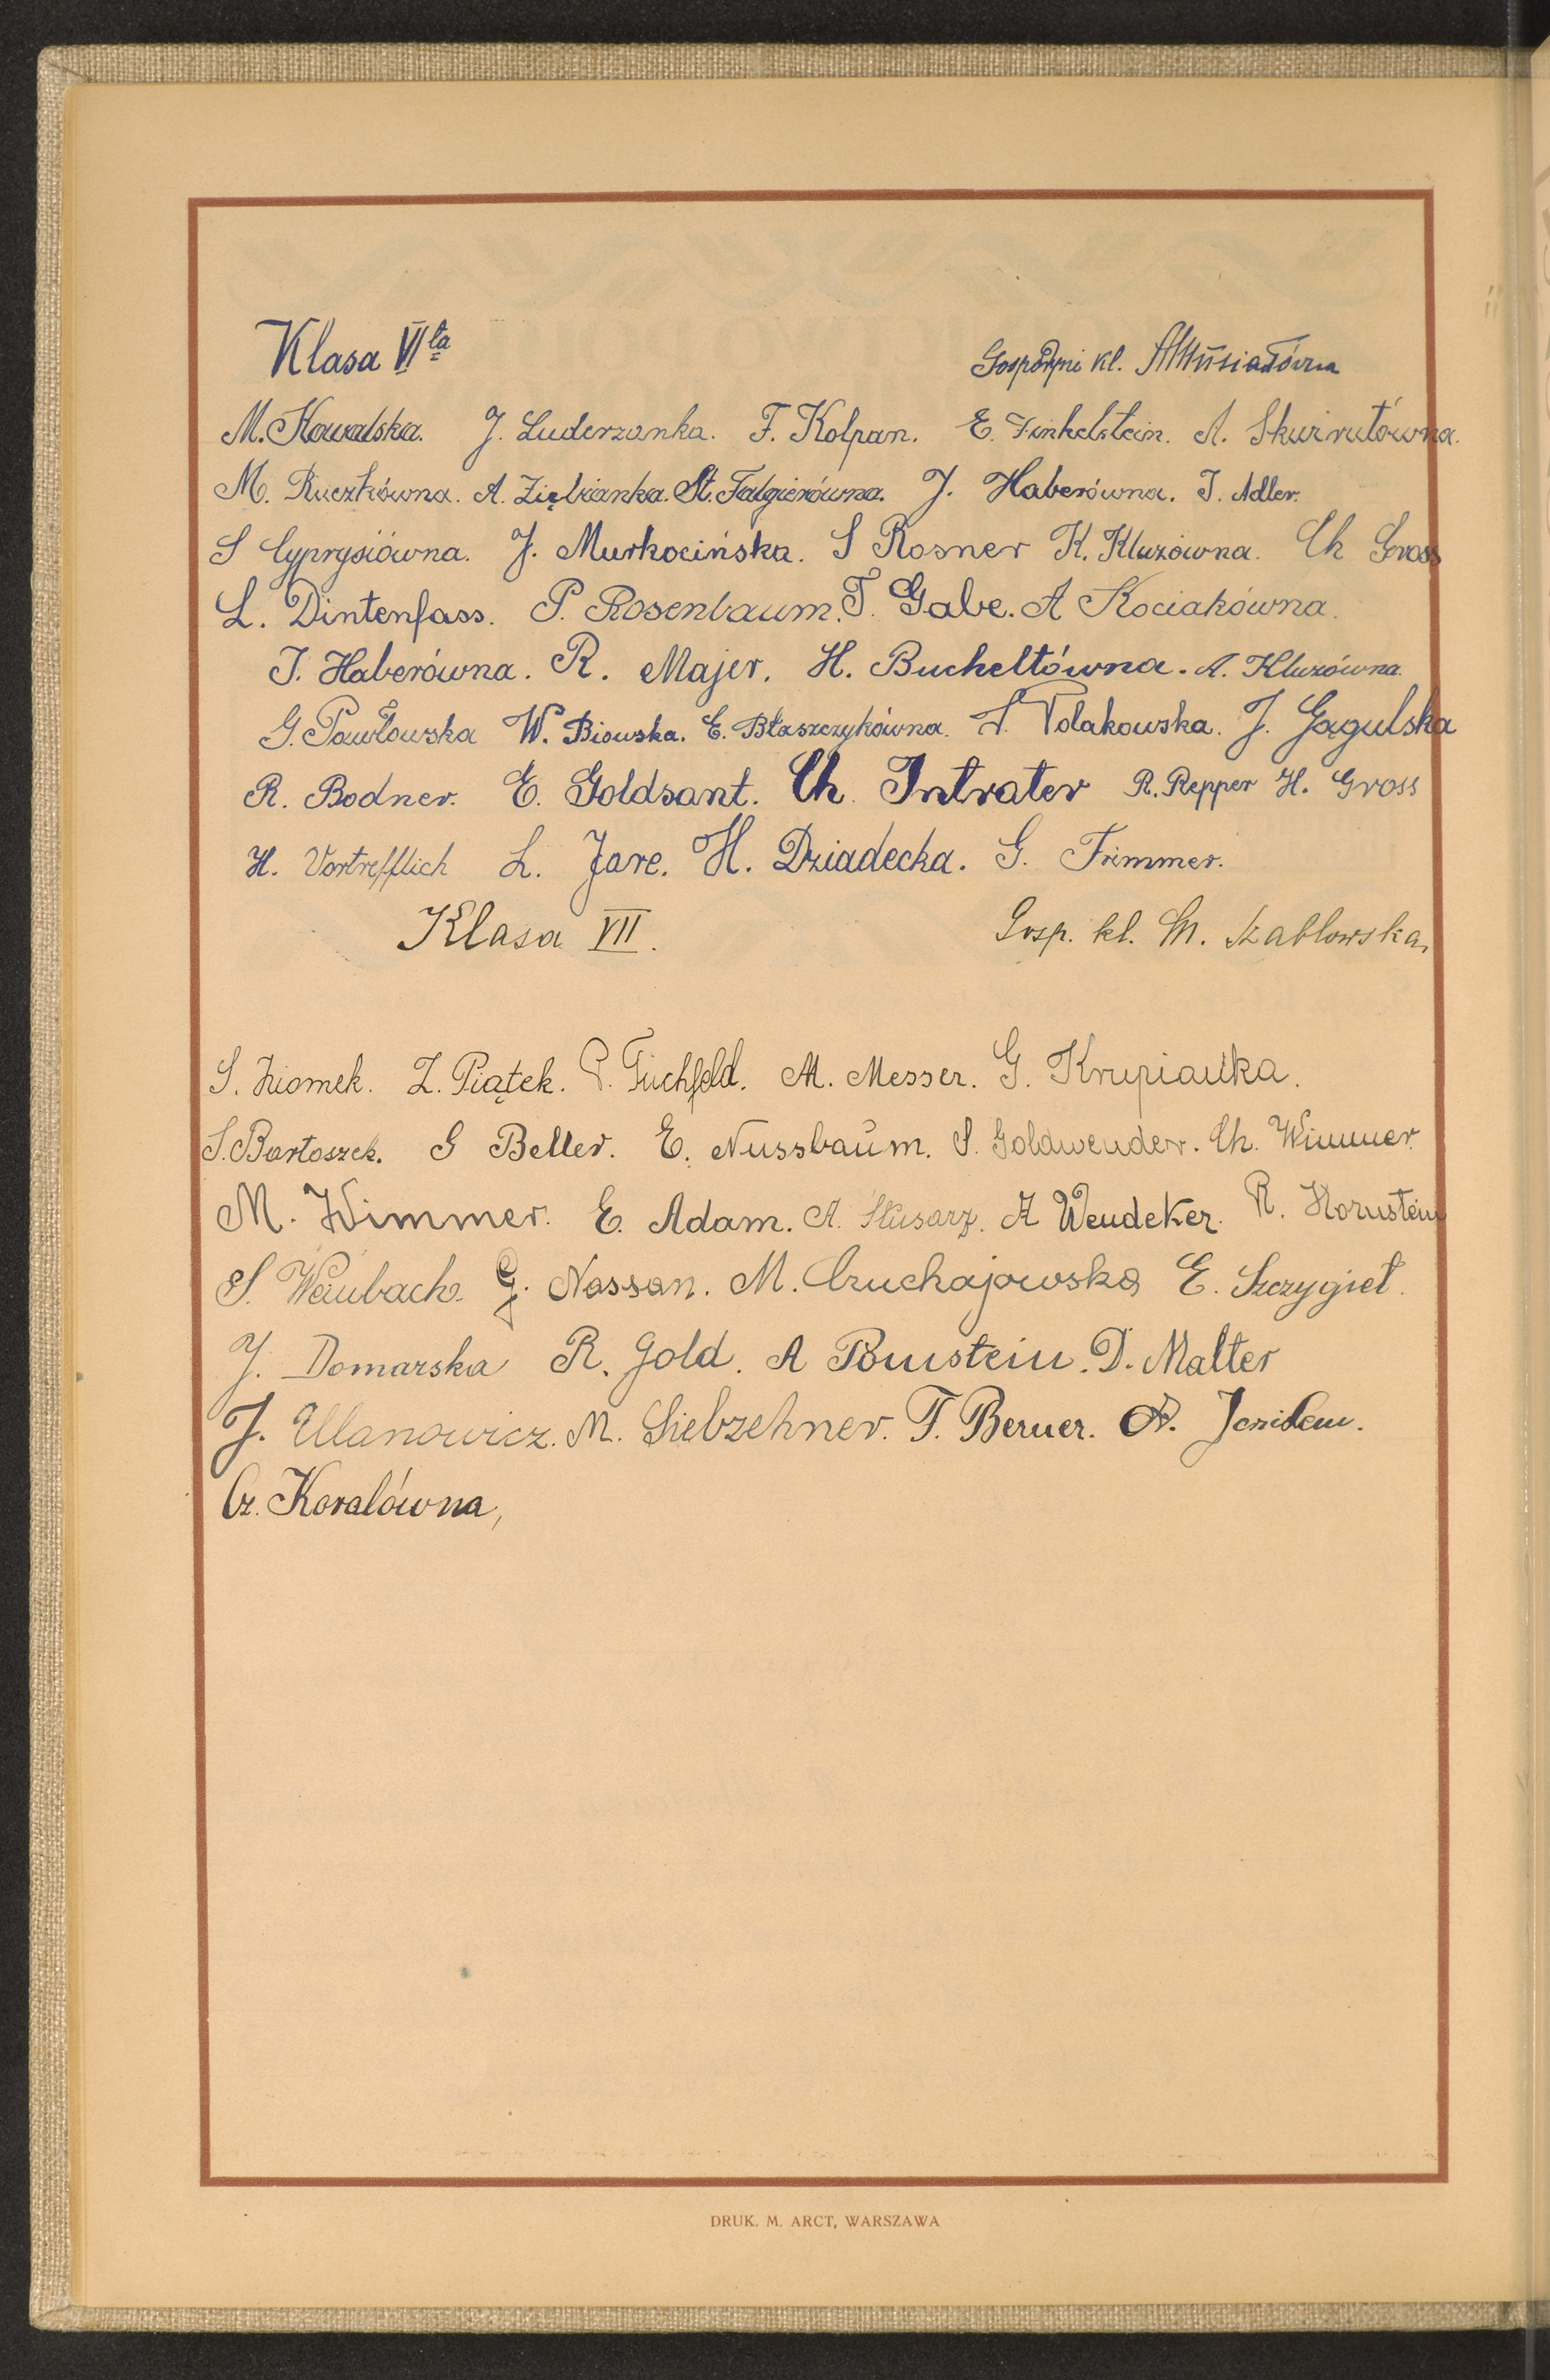 Klasa VI ta Gospodyni kl. AMusiałówna
M. Kowalska. J. Luderzanka. F. Kolpan. E. Finkelstein. A. Skwirutówna.
M. Ruczkówna. A. Ziębianka. St. Falgierówna. J. Haberówna. I. Adler.
S Cyprysiówna. J. Murkocińska. S Rosner K. Kluzówna. Ch Gross
L. Dintenfass. P. Rosenbaum. T. Gabe. A Kociakówna.
I. Haberówna. R. Majer. H. Bucheltówna. A. Kluzówna.
G. Pawłowska W. Biowska. E. Błaszczykówna. S. Polakowska. J. Gągulska
R. Bodner. E. Goldsant. Ch. Intrater R. Repper H. Gross
H. Vortrefflich L. Jare. H. Dziadecka. G. Frimmer.
Klasa VII. Gosp. kl. M. Szablowska,
S. Ziomek. Z. Piątek. P. Tuchfeld. M. Messer. G. Krupianka.
S. Bartoszek. G Beller. E. Nussbaum. S. Goldwender. Ch. Wimmer.
M. Wimmer. E. Adam. A. Slusarz. A Wendeker. R. Hornstein
S. Weinbach. G. Nassan. M. Czuchajowska E. Szczygieł.
J. Domarska R. Gold. A Bornstein. D. Malter
J. Ulanowicz. M. Siebzehner. T. Berner. A.
Cz. Koralówna,
DRUK. M. ARCT, WARSZAWA